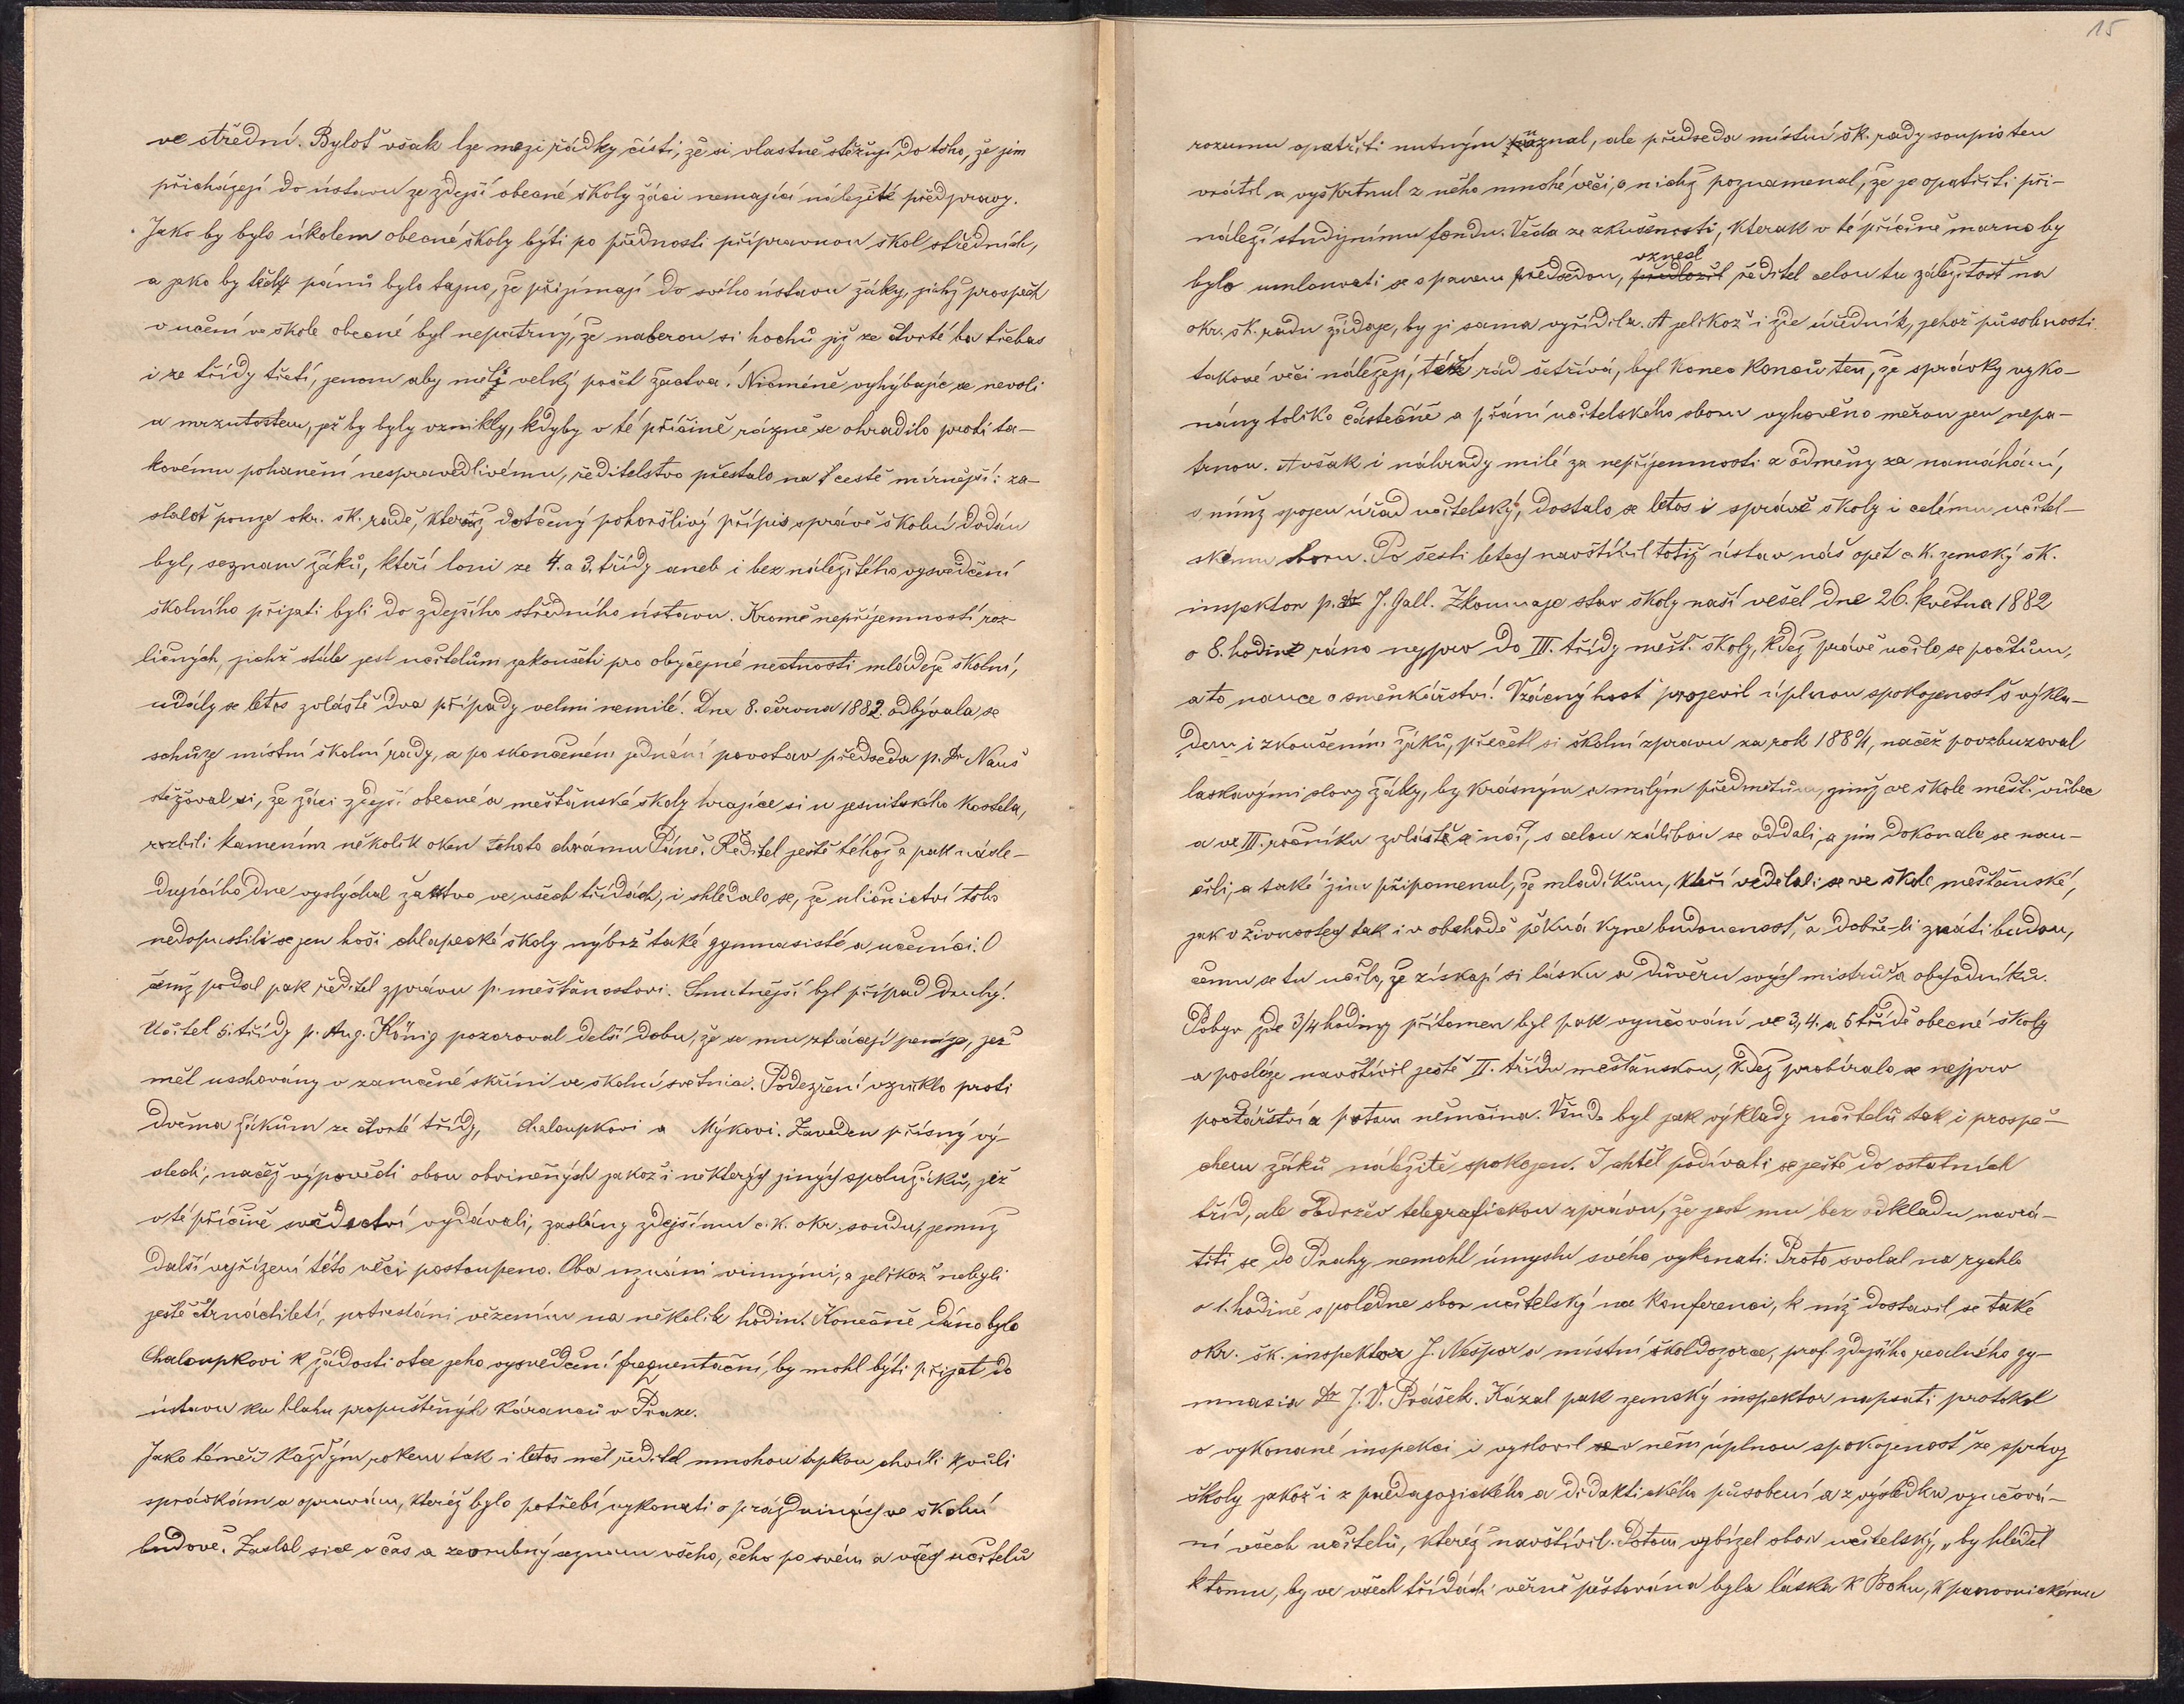 ve střední. Byloť však lze mezi řádky čísti, že si vlastně stěžují do toho, že jim
přicházejí do ústavu ze zdejší obecné školy žáci nemající náležité předpravy.
Jako by bylo úkolem obecné školy býti po přednosti přípravnou škol středních,
a jako by těchž pánů bylo tajno, že přijímají do svého ústavu žáky, jichž prospěch
v učení ve škole obecné byl nepatrný, že naberou si hochů již ze čtvrté ba třebas
i ze třídy třetí, jenom aby měli velký počet žactva! Nicméně vyhýbajíc se nevoli
a mrzutostem, jež by byly vznikly, kdyby v té příčině rázně se ohradilo proti ta-
kovému pohanění nespravedlivému, ředitelstvo přestalo na cestě mírnější: za-
slaloť pouze okr. šk. radě, kteráž dotčený pohoršlivý přípis správě školní dodán
byl, seznam žáků, kteří loni ze 4. a 3. třídy aneb i bez náležitého vysvědčení
školního přijati byli do zdejšího středního ústavu. Kromě nepříjemností roz-
ličných, jichž stále jest učitelům zakoušeti pro obyčejné nectnosti mládeže školní,
udály se letos zvláště dva případy velmi nemilé. Dne 8. června 1882. odbývala se
schůze místní školní rady, a po skončeném jednání povstav předseda p. Dr Nauš
stěžoval si, že žáci zdejší obecné a měšťanské školy hrajíce si u jesuitského kostela,
rozbili kamením několik oken tohoto chrámu Páně. Ředitel ještě téhož a pak násle-
dujícího dne vyslýchal žactvo ve všech třídách, i shledalo se, že uličnictví toho
nedopustili se jen hoši chlapecké školy nýbrž také gymnasisté a učenníci. O
čemž podal pak ředitel zprávu p. měšťanostovi. Smutnější byl případ druhý.
Učitel 5. třídy p. Aug. König pozoroval delší dobu, že se mu ztrácejí peníze, jež
měl uschovány v zamčené skříni ve školní světnici. Podezření vzniklo proti
dvěma žákům ze čtvrté třídy, Chaloupkovi a Mýkovi. Zaveden přísný vý-
slech, načež výpovědi obou obviněných jakož i některých jiných spolužáků, jež
v té příčině svědectví vydávali, zaslány zdejšímu c. k. okr. soudu, jemuž
další vyřízení této věci postoupeno. Oba uznáni vinnými, a jelikož nebyli
ještě čtrnáctiletí, potrestáni vězením na několik hodin. Konečně dáno bylo
Chaloupkovi k žádosti otce jeho vysvědčení frequentační, by mohl býti přijat do
ústavu ku blahu propuštěných káranců v Praze.
Jako téměř každým rokem tak i letos měl ředitel mnohou trpkou chvíli kvůli
správkám a opravám, kteréž bylo potřebí vykonati o prázdninách ve školní
budově. Zaslal sice v čas a zevrubný seznam všeho, čeho po svém a všech učitelů
15
rozumu opatřiti nutným uznal, ale předseda místní šk. rady soupis ten
vrátil a vyškrtnul z něho mnohé věci, o nichž poznamenal, že je opatřiti při-
náleží studijnímu fondu. Věda ze zkušenosti, kterak v té příčině marno by
vznesl
bylo umlouvati se s panem předsedou, předložil ředitel celou tu záležitost na
okr. šk. radu žádaje, by ji sama vyřídila. A jelikož i zde úředník, jehož působnosti
takové věci náležejí, též rád šetřívá, byl konec konců ten, že správky vyko-
nány toliko částečně a přání učitelského sboru vyhověno měrou jen nepa-
trnou. Avšak i náhrady milé za nepříjemnosti a odměny za namáhání,
s nímž spojen úřad učitelský, dostalo se letos i správě školy i celému učitel-
skému sboru. Po šesti letech navštívil totiž ústav náš opět c. k. zemský šk.
inspektor p. J. Gall. Zkoumaje stav školy naší vešel dne 26. května 1882
o 8. hodině ráno nejprv do III. třídy měšť. školy, kdež právě učilo se počtům,
a to nauce o směnkářství. Vzácný host projevil úplnou spokojenost s výkla-
dem i zkoušením žáků, přečetl si školní zprávu za rok 1880/1, načež povzbuzoval
laskavými slovy žáky, by krásným a milým předmětům, jimž ve škole měšť. vůbec
a ve III. ročníku zvláště se učí, s celou zálibou se oddali, a jim dokonale se nau-
čili, a také jim připomenul, že mladíkům, kteří vzdělali se ve škole měšťanské,
jak v živnostech tak i v obchodě pěkná kyne budoucnost, a dobře-li znáti budou,
čemu se tu učilo, že získají si lásku a důvěru svých mistrů a obchodníků.
Pobyv zde 3/4 hodiny přítomen byl pak vyučování ve 3, 4. a 5 třídě obecné školy
a posléze navštívil ještě II. třídu měšťanskou, kdež probíralo se nejprv
počtářství a potom němčina. Všude byl jak výklady učitelů tak i prospě-
chem žáků náležitě spokojen. I chtěl podívati se ještě do ostatních
tříd, ale obdržev telegrafickou zprávu, že jest mu bez odkladu navrá-
titi se do Prahy nemohl úmyslu svého vykonati. Proto svolal na rychlo
o 1. hodině s poledne sbor učitelský na konferenci, k níž dostavil se také
okr. šk. inspektor J. Nešpor a místní školdozorce, prof. zdejšího reálného gy-
mnasia Dr J. V. Prášek. Kázal pak zemský inspektor napsati protokol
o vykonané inspekci i vyslovil se v něm úplnou spokojenost ze správy
školy jakož i z paedagogického a didaktického působení a z výsledku vyučová-
ní všech učitelů, kteréž navštívil. Potom vybízel sbor učitelský, „by hleděl
k tomu, by ve všech třídách věrně pěstována byla láska k Bohu, k panovnickému